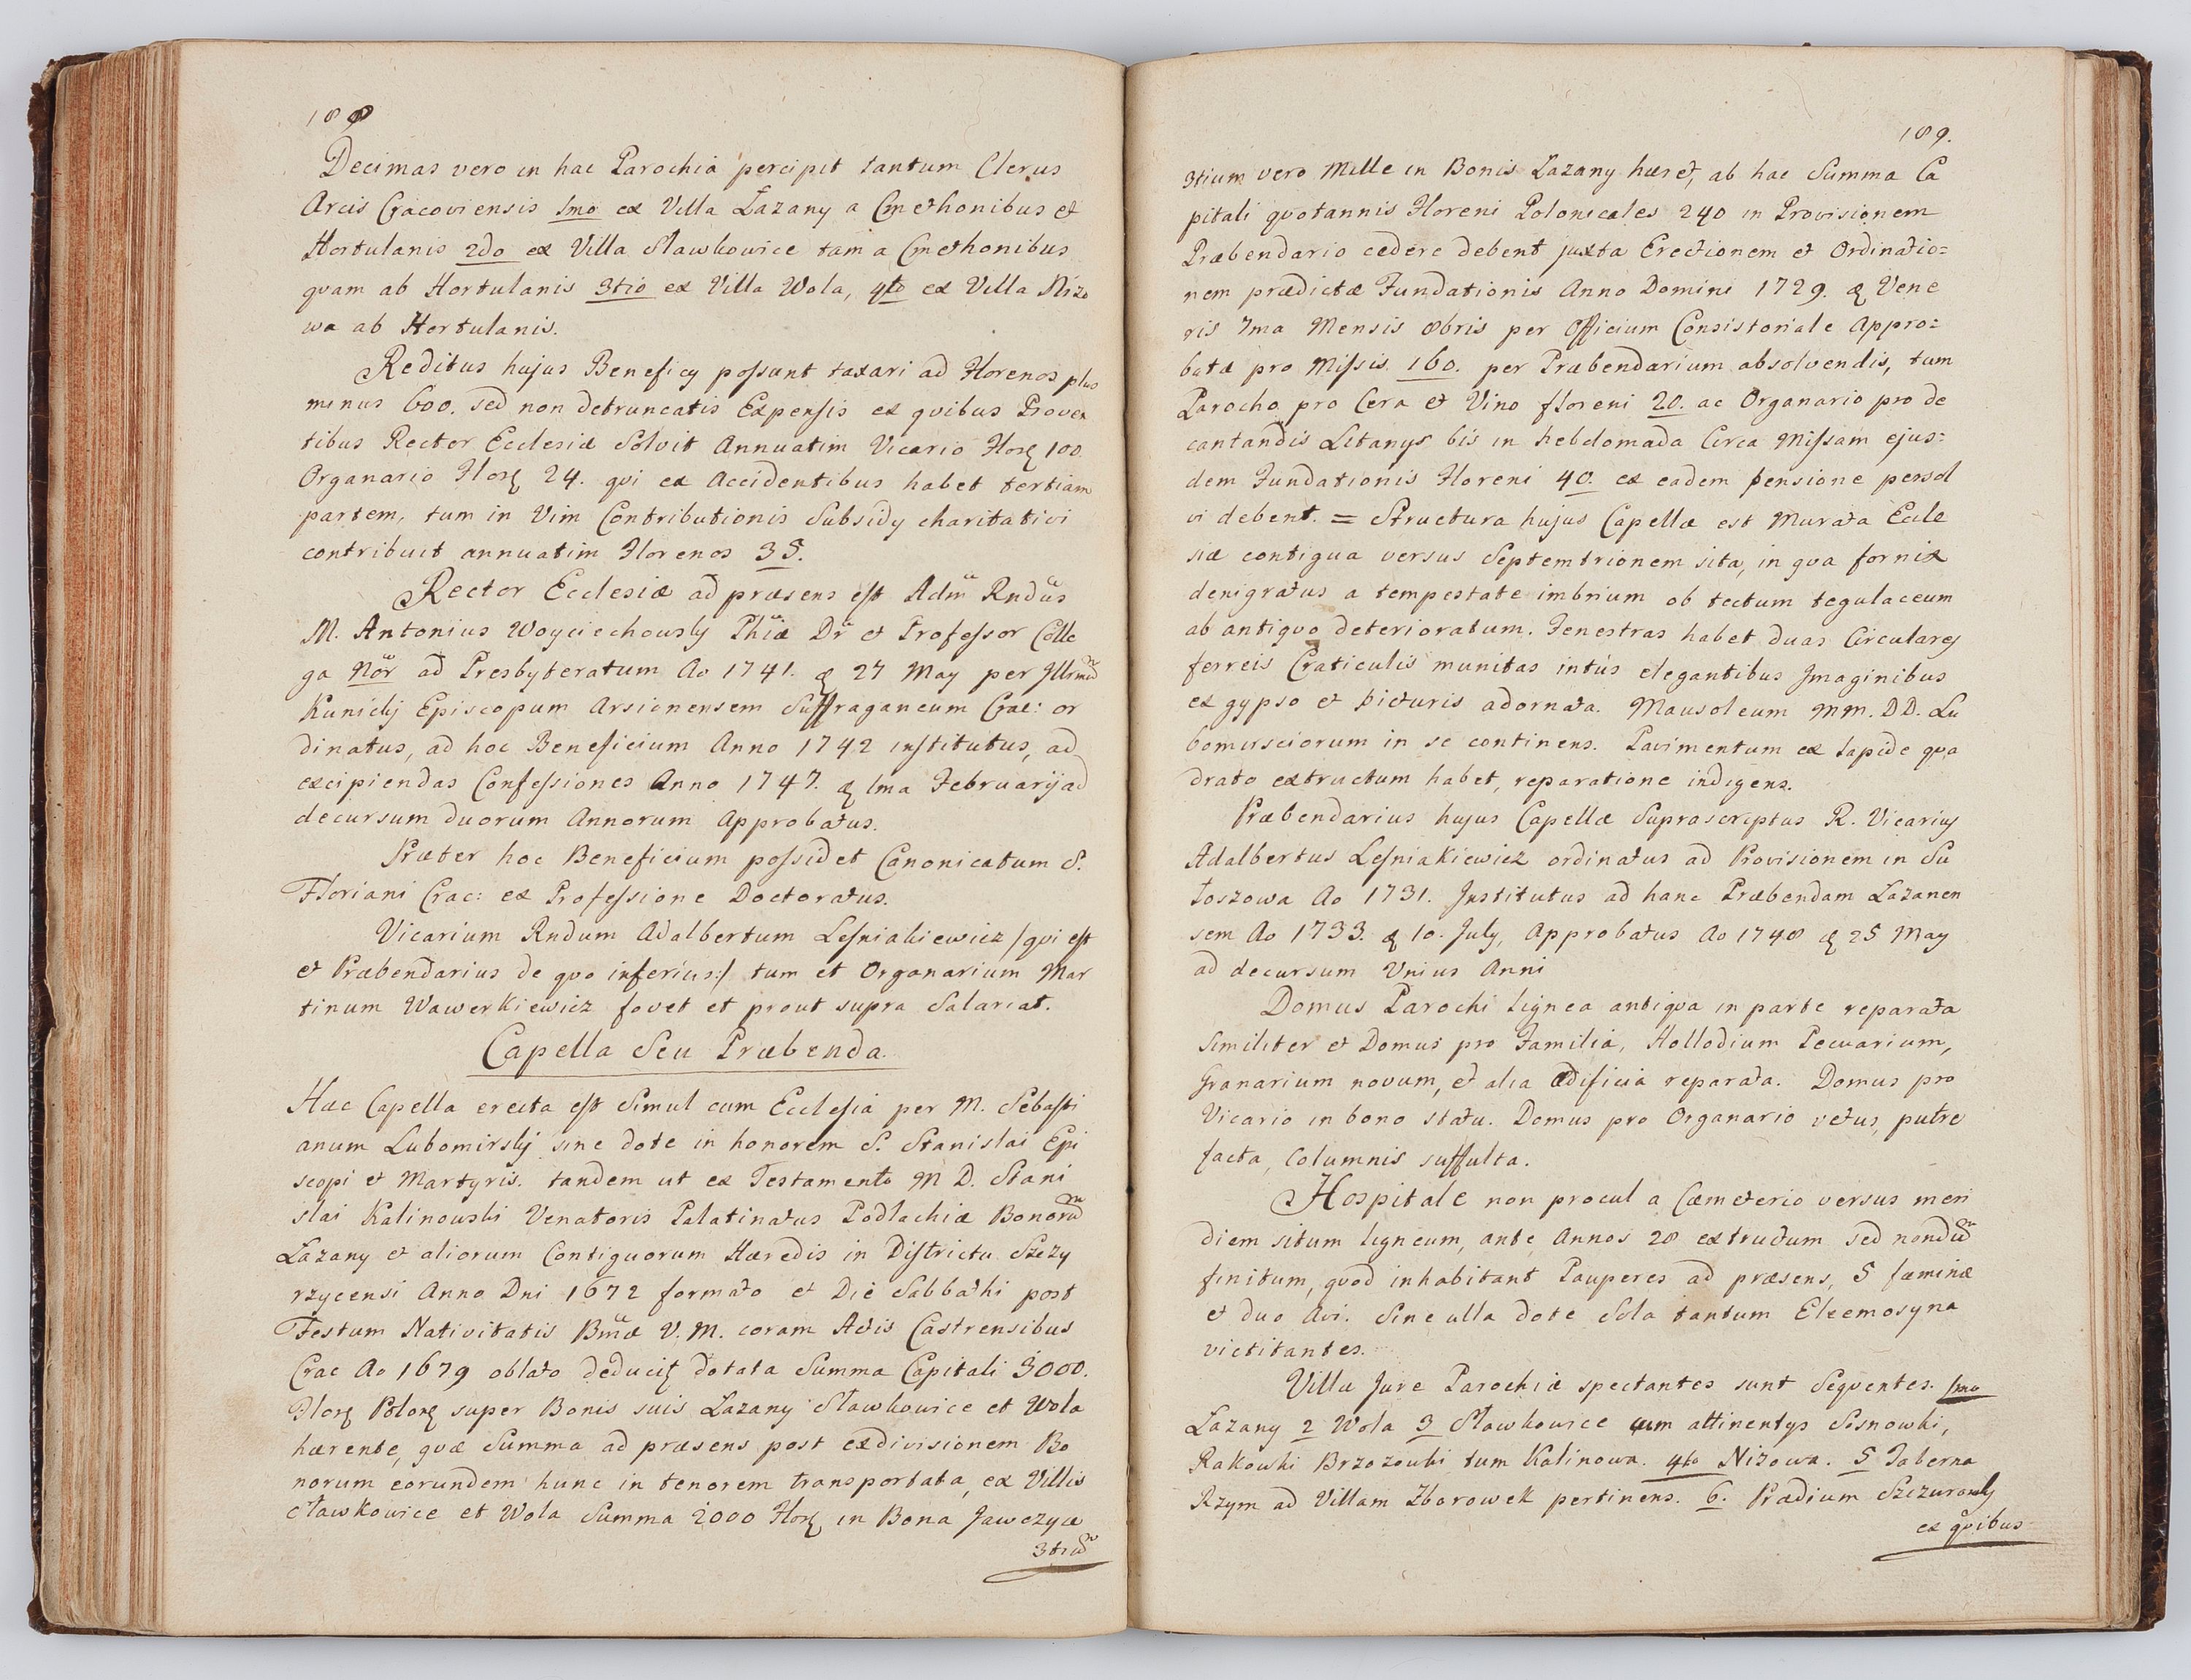 188
Decimas vero in hac Parochia percipit tantum Clerus
Arcis Cracoviensis 1mo ex Villa Łazany a Cmethonibus et
Hortulanis 2do ex Villa Sławkowice tam a Cmethonibus
qvam ab Hortulanis 3tio ex Villa Wola, 4to ex Villa Nizo
wa ab Hortulanis.
Reditus hujus Beneficij possunt taxari ad Florenos plus
minus 600. sed non detruncatis Expensis ex qvibus Proven
tibus Rector Ecclesiæ Solvit Annuatim Vicario Flor 100
Organario Flor 24. qvi ex Accidentibus habet tertiam
partem, tum in Vim Contributionis Subsidy charitativi
contribuit annuatim Florenos 35.
Rector Ecclesiæ ad præsens est Adm Rndus
M. Antonius Woyciechowsky Phiæ Dr et Professor Colle
ga Nor ad Presbyteratum Ao 1741. 27 May per Illrmu
Kunicky Episcopum Arsionensem Suffraganeum Crac: or
dinatus, ad hoc Beneficium Anno 1742 institutus, ad
excipiendas Confessiones Anno 1747. 1ma Februarij ad
decursum duorum Annorum Approbatus.
Præter hoc Beneficium possidet Canonicatum S.
Floriani Crac: ex Professione Doctoratus.
Vicarium Rndum Adalbertum Lesniakiewicz /qvi est
et Præbendarius de qvo inferius:/ tum et Organarium Mar
tinum Wawerkiewicz fovet et prout supra Salariat.
Capella Seu Præbenda.
Hæc Capella erecta est Simul cum Ecclesia per M. Sebasti
anum Lubomirsky sine dote in honorem S. Stanislai Epi
scopi et Martyris. tandem ut ex Testamento M D. Stani
slai Kalinowski Venatoris Palatinatus Podlachiæ Bonoru
Łazany et aliorum Contiguorum Hæredis in Districtu Szczy
rzycensi Anno Dni 1672 formato et Die Sabbathi post
Festum Nativitatis Bmæ V. M. coram Actis Castrensibus
Crac Ao 1679 oblato deducit dotata Summa Capitali 3000.
Flor Polor super Bonis suis Łazany Sławkowice et Wola
hærente, qvæ Summa ad præsens post exdivisionem Bo
norum eorundem hunc in tenorem transportata, ex Villis
Sławkowice et Wola Summa 2000 Flor in Bona Jawczyce
3tiu
189.
3tium vero Mille in Bonis Łazany hæret, ab hac Summa Ca
pitali qvotannis Floreni Polonicales 240 in Provisionem
Præbendario cedere debent juxta Erectionem et Ordinatio=
nem prædictæ Fundationis Anno Domini 1729. Vene
ris 7ma Mensis 8bris per Officium Consistoriale Appro=
batæ pro Missis 160. per Præbendarium absolvendis, tum
Parocho pro Cera et Vino floreni 20. ac Organario pro de
cantandis Litanys bis in hebdomada Circa Missam ejus=
dem Fundationis Floreni 40. ex eadem pensione persol
vi debent. = Structura hujus Capellæ est Murata Eccle
siæ contigua versus Septemtrionem sita, in qva fornix
denigratus a tempestate imbrium ob tectum tegulaceum
ab antiqvo deterioratum. Fenestras habet duas Circulares
ferreis Craticulis munitas intus elegantibus Jmaginibus
ex gypso et picturis adornata. Mausoleum MM. DD. Lu
bomirsciorum in se continens. Pavimentum ex lapide qva
drato extructum habet, reparatione indigens.
Præbendarius hujus Capellæ Suprascriptus R. Vicarius
Adalbertus Lesniakiewicz ordinatus ad Provisionem in Su
łoszowa Ao 1731. Institutus ad hanc Præbendam Łazanen
sem Ao 1733. 10. July, Approbatus Ao 1748 25 May
ad decursum Unius Anni
Domus Parochi lignea antiqva in parte reparata
Similiter et Domus pro Familia, Hollodium Pecuarium,
Granarium novum, et alia Ædificia reparata. Domus pro
Vicario in bono statu. Domus pro Organario vetus, putre
facta, Columnis suffulta.
Hospitale non procul a Cæmeterio versus meri
diem situm ligneum, ante Annos 28 extructum sed nondu
finitum, qvod inhabitant Pauperes ad præsens, 5 fæminæ
et duo Avi. Sine ulla dote Sola tantum Eleemosyna
victitantes.
Villæ Jure Parochiæ spectantes sunt Seqventes. 1mo
Łazany 2 Wola 3 Sławkowice cum attinentys Sosnowki,
Rakowki Brzozowki tum Kalinowa. 4to Nizowa. 5 Taberna
Rzym ad Villam Zborowek pertinens. 6. Prædium Szczurowsky
ex qvibus